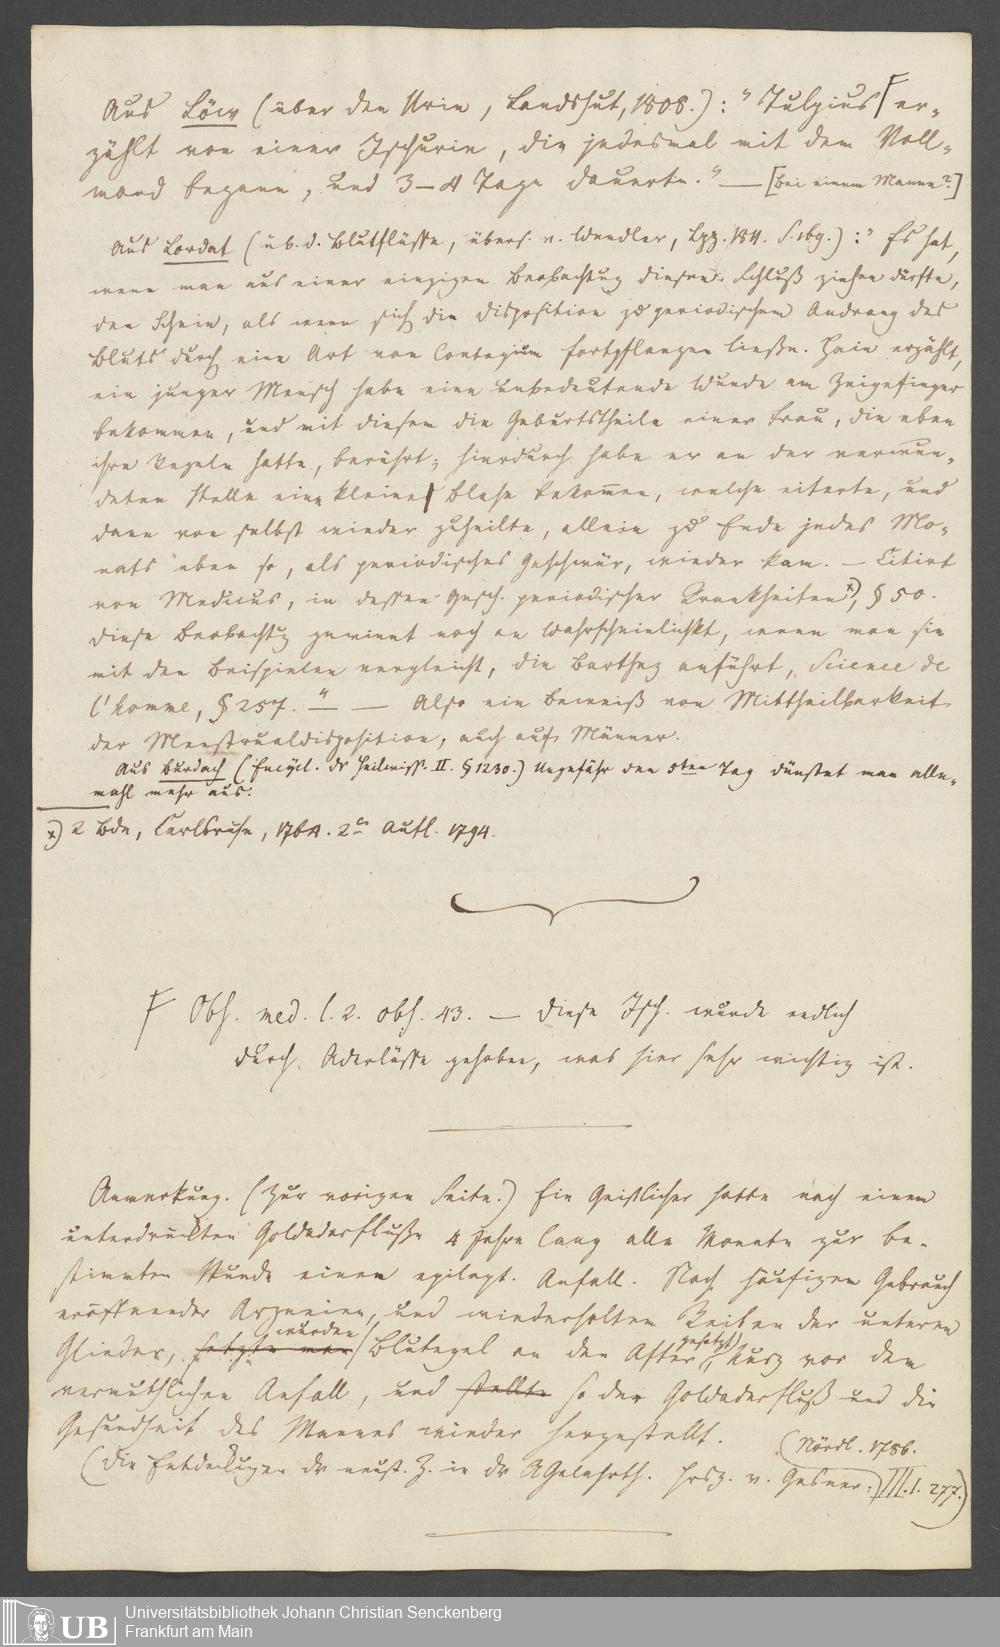 Aus Löw (über den Urin, Landshut, 1808.): „Tulpius er-
zählt von einer Ischurie, die jedesmal mit dem Voll-
mond begann, und 3–4 Tage dauerte." — [bei einem Manne?]
Aus Lordat (üb. d. Blutflüsse, übers. v. Wendler, Lpz. 1811. S. 169.): „Es hat,
wenn man aus einer einzigen Beobachtung diesen Schluß ziehen dürfte,
den Schein, als wenn sich die Disposition zu periodischem Andrang des
Bluts durch eine Art von Contagium fortpflanzen ließe. Hain erzählt,
ein junger Mensch habe eine unbedeutende Wunde am Zeigefinger
bekommen, und mit diesem die Geburtstheile einer Frau, die eben
ihre Regeln hatte, berührt; hierdurch habe er an der verwun-
deten Stelle eine kleine Blase bekommen, welche eiterte, und
dann von selbst wieder zuheilte, allein zu Ende jedes Mo-
nats eben so, als periodisches Geschwür, wieder kam. — Citirt
von Medicus, in dessen Gesch. periodischer Krankheiten x), § 50.
Diese Beobachtg gewinnt noch an Wahrscheinlichkt, wenn man sie
mit den Beispielen vergleicht, die Barthez anführt, Science de
l'homme, § 257." — Also ein Beweiß von Mittheilbarkeit
der Menstrualdisposition, auch auf Männer.
Aus Burdach (Encycl. dr Heilwiss. II. § 1230.) Ungefähr den 5ten Tag dünstet man alle-
mahl mehr aus.
x) 2 Bde, Carlsruhe, 1764. 2te Aufl. 1794.
F Obs. med. l. 2. obs. 43. — Diese Isch. wurde endlich
durch Aderlässe gehoben, was hier sehr wichtig ist.
Anmerkung. (Zur vorigen Seite.) Ein Geistlicher hatte nach einem
unterdrückten Goldaderfluße 4 Jahre lang alle Monate zur be-
stimmten Stunde einen epilept. Anfall. Nach häufigem Gebrauch
eröffnender Arzneien, und wiederholtem Reiben der unteren
Glieder, setzte man wurden Blutegel an den After gesetzt, kurz vor dem
vermuthlichen Anfall, und stellte so der Goldaderfluß und die
Gesundheit des Mannes wieder hergestellt.
(Nördl. 1786.
(Die Entdeckungen dr neust. Z. in dr AGelahrth. hrsg. v. Gesner:) III. 1. 277.)
Universitätsbibliothek Johann Christian Senckenberg
Frankfurt am Main
UB